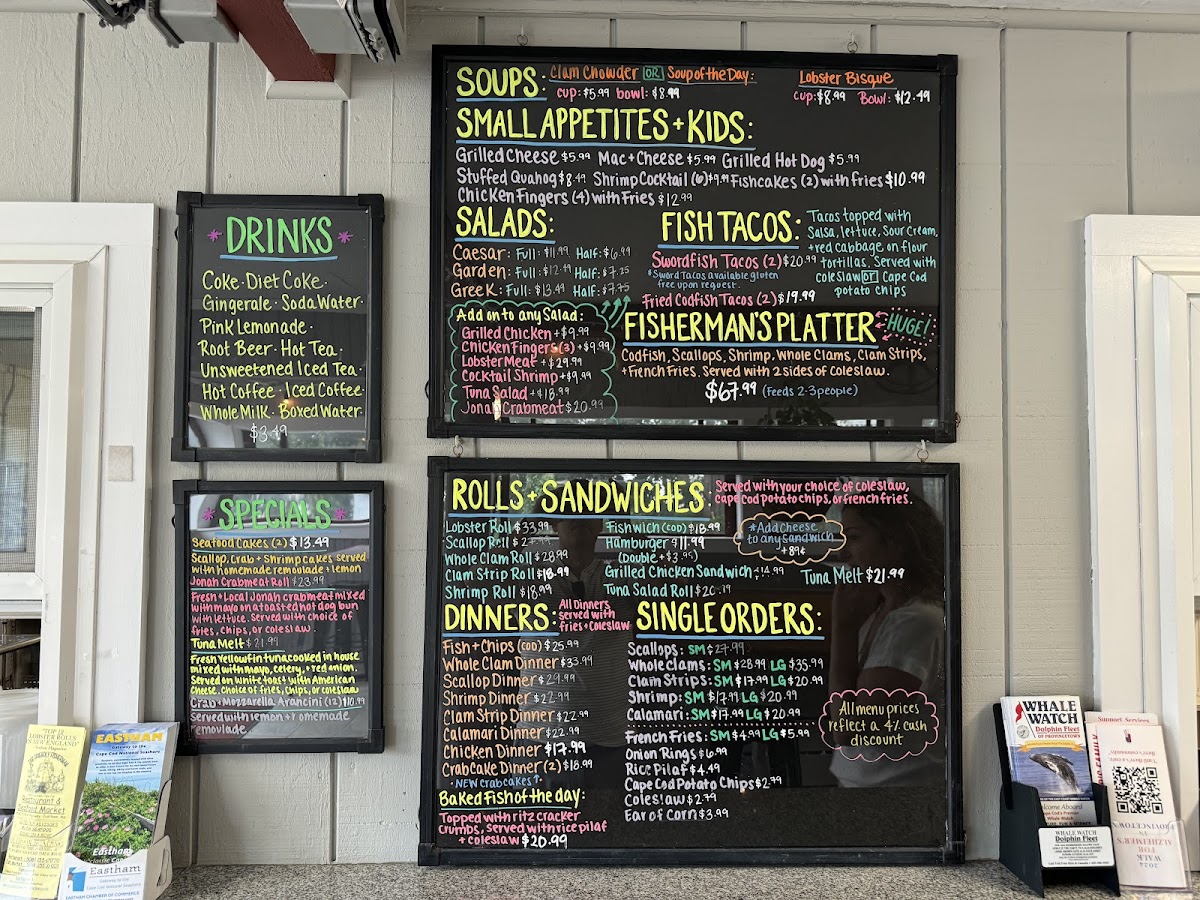 DRINKS
Coke · Diet Coke ·
Gingerale · Soda Water ·
Pink Lemonade ·
Root Beer · Hot Tea ·
Unsweetened Iced Tea ·
Hot Coffee · Iced Coffee
Whole Milk · Boxed Water
$3.49
SPECIALS
Seafood Cakes (2) $13.49
Scallop, Crab + Shrimp cakes served
with homemade remoulade + lemon
Jonah Crabmeat Roll $23.99
Fresh + Local Jonah crabmeat mixed
with mayo on a toasted hot dog bun
with lettuce. Served with choice of
fries, chips, or coleslaw.
Tuna Melt $21.99
Fresh Yellowfin tuna cooked in house
mixed with mayo, celery, + red onion.
Served on white toast with American
Cheese. Choice of fries, chips, or coleslaw
Crab + Mozzarella Arancini (12) $10.99
Served with lemon + remomade
remoulade.
SOUPS: Clam Chowder OR Soup of the Day: Lobster Bisque
cup: $5.99 bowl: $8.99 cup: $8.99 Bowl: $12.49
SMALL APPETITES + KIDS:
Grilled Cheese $5.99 Mac + Cheese $5.99 Grilled Hot Dog $5.99
Stuffed Quahog $8.49 Shrimp Cocktail (6) $9.99 Fishcakes (2) with fries $10.99
Chicken Fingers (4) with Fries $12.99
SALADS:
Caesar: Full: $11.99 Half: $6.99
Garden: Full: $12.49 Half: $7.25
Greek: Full: $13.49 Half: $7.75
Add on to any Salad:
Grilled Chicken + $9.99
Chicken Fingers (3) + $9.99
Lobster Meat + $29.99
Cocktail Shrimp + $9.99
Tuna Salad + $18.99
Jonah Crabmeat $20.99
FISH TACOS:
Tacos topped with
Salsa, lettuce, Sour Cream,
+ red cabbage on flour
tortillas. Served with
coleslaw OR Cape Cod
potato chips
Swordfish Tacos (2) $20.99
*Sword Tacos available gluten
free upon request.
Fried Codfish Tacos (2) $19.99
FISHERMAN'S PLATTER HUGE!
Codfish, Scallops, Shrimp, Whole Clams, Clam Strips,
+ French Fries. Served with 2 sides of coleslaw.
$67.99 (Feeds 2-3 people)
ROLLS + SANDWICHES: Served with your choice of coleslaw,
cape cod potato chips, or french fries.
Lobster Roll $33.99
Scallop Roll
Whole Clam Roll $28.99
Clam Strip Roll $18.99
Shrimp Roll $18.99
Fishwich (COD) $18.99
Hamburger $11.99
(Double + $3.95)
Grilled Chicken Sandwich $14.99
Tuna Salad Roll $20.19
*Add Cheese
to any sandwich
+ 89¢
Tuna Melt $21.99
DINNERS: All Dinners
served with
fries + Coleslaw
Fish + Chips (COD) $25.99
Whole Clam Dinner $33.99
Scallop Dinner $29.99
Shrimp Dinner $22.99
Clam Strip Dinner $22.99
Calamari Dinner $22.99
Chicken Dinner $17.99
Crabcake Dinner (2) $18.99
· NEW crabcakes ↑ ·
Baked Fish of the day:
Topped with ritz cracker
crumbs, served with rice pilaf
+ coleslaw $20.99
SINGLE ORDERS:
Scallops: SM $27.99
Whole clams: SM $28.99 LG $35.99
Clam Strips: SM $17.99 LG $20.99
Shrimp: SM $17.99 LG $20.99
Calamari: SM $17.99 LG $20.99
French Fries: SM $4.99 LG $5.99
Onion Rings $6.99
Rice Pilaf $4.49
Cape Cod Potato Chips $2.79
Coleslaw $2.79
Ear of Corn $3.99
All menu prices
reflect a 4% cash
discount
"TOP 12
LOBSTER ROLLS
Restaurant &
Market
EASTHAM
Eastham
EASTHAM CHAMBER OF COMMERCE
WHALE
WATCH
Dolphin Fleet
OF PROVINCETOWN
Welcome Aboard
WHALE WATCH
Dolphin Fleet
Summit Services
2024
WALK
FOR
ALZHEIMER'S
IN
PROVINCETOWN